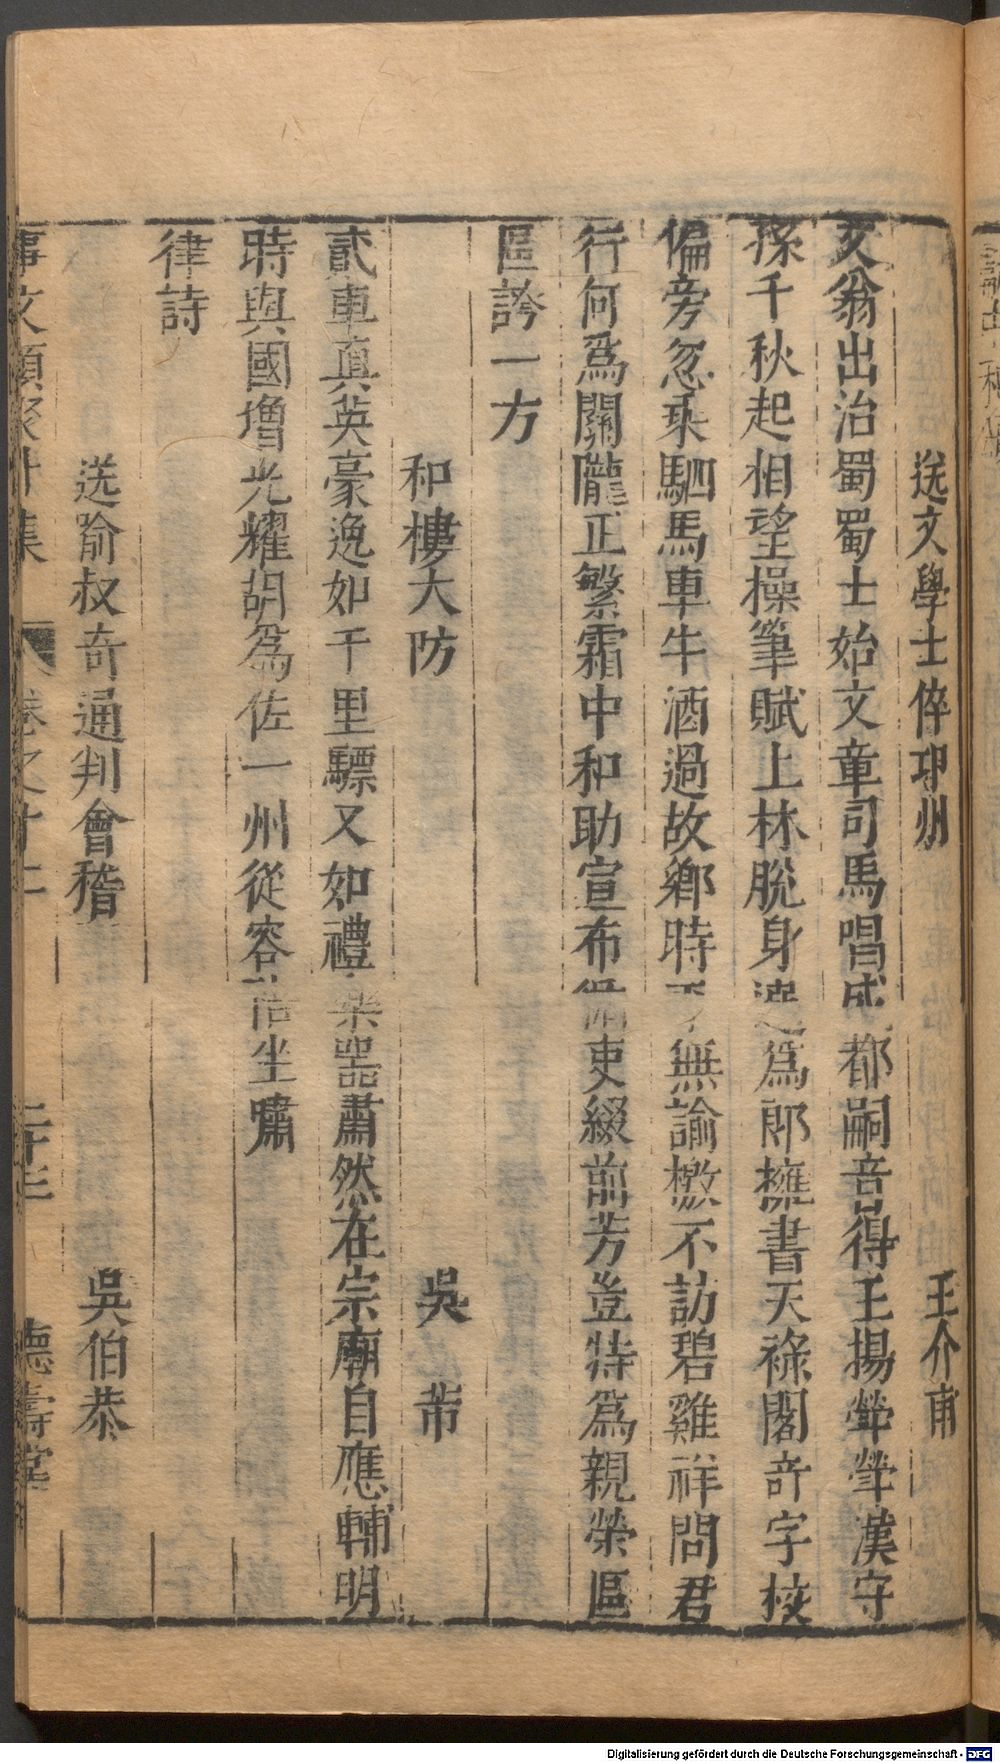 送文學士倅卭州 王介甫
文翁出治蜀蜀士始文章司馬唱成都嗣音得王揚犖犖漢守
孫千秋起相望操筆賦上林脫身選爲郎擁書天祿閣竒字校
偏旁忽乘駟馬車牛酒過故鄉時平無諭檄不訪碧雞祥問君
行何爲關隴正繁霜中和助宣布循吏綴前芳豈特爲親榮區
區誇一方
和樓大防 吳芾
貳車真英豪逸如千里驃又如禮樂器肅然在宗廟自應輔明
時與國增光耀胡爲佐一州從容浩坐嘯
律詩
送喻叔奇通判會稽 吳伯恭
事文類聚外集 卷之十二 二十三 德壽堂
Digitalisierung gefördert durch die Deutsche Forschungsgemeinschaft - DFG